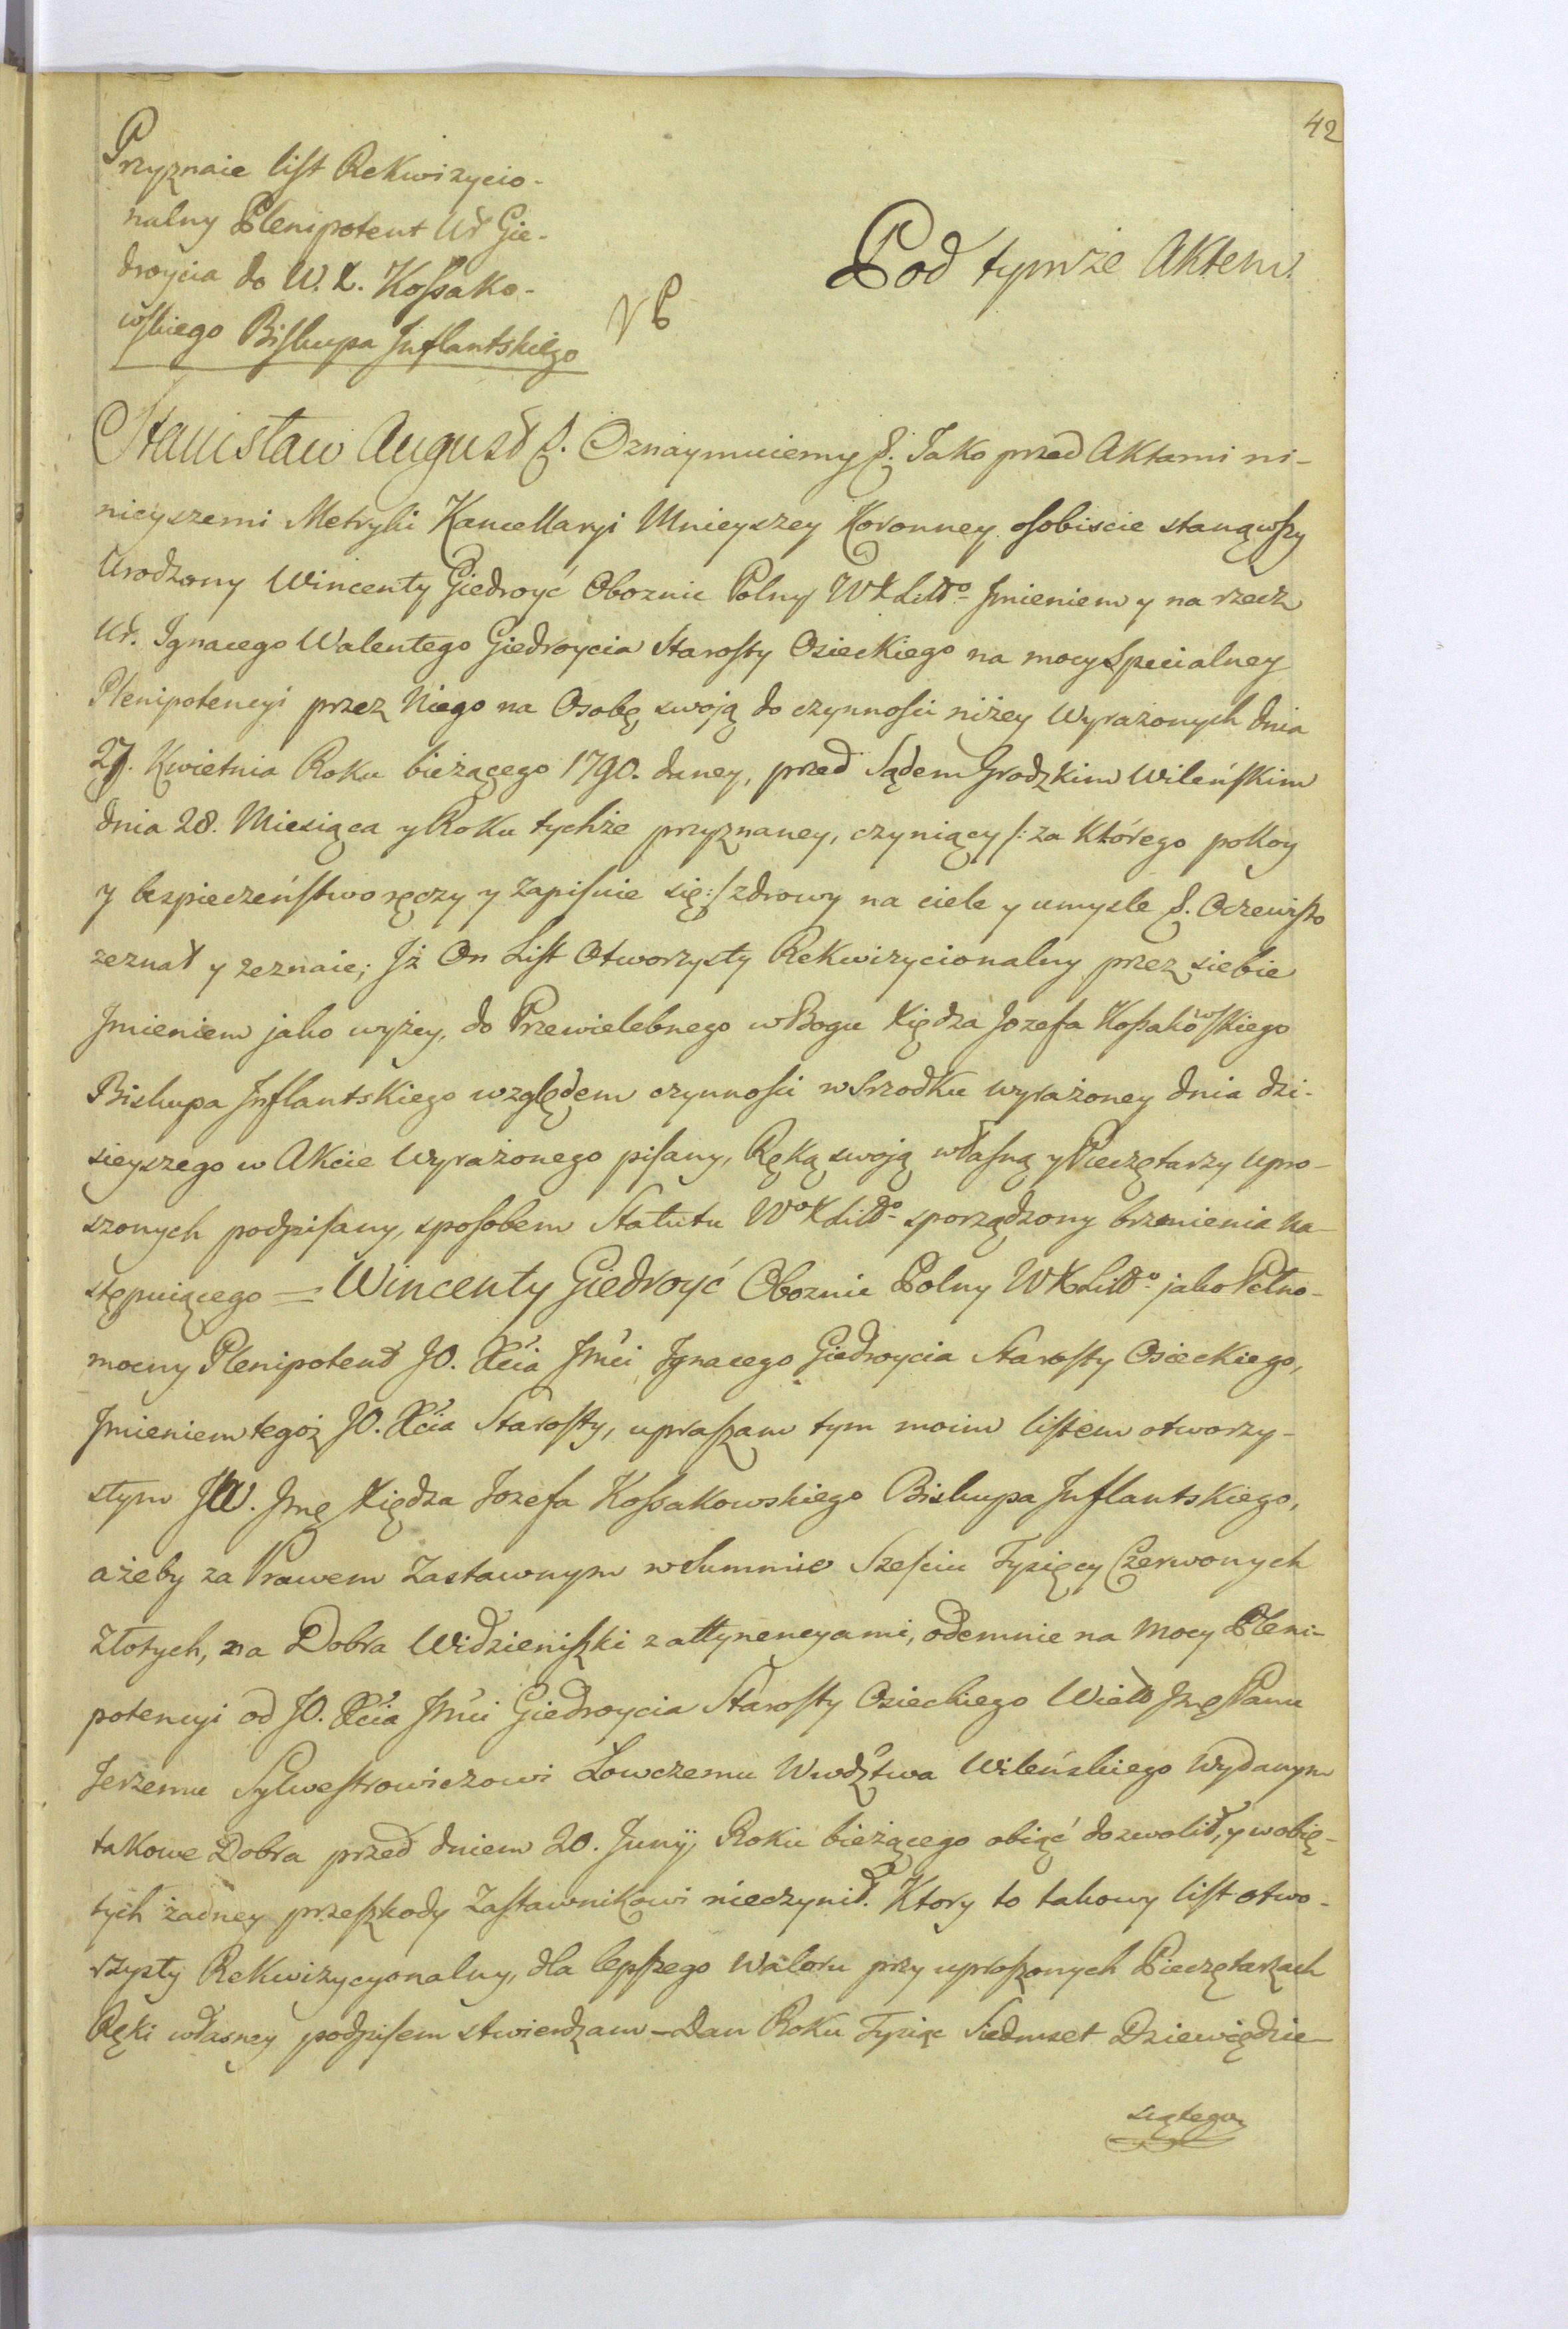 42
Przyznaie list Rekwizycio-
nalny Plenipotent Ur Gie-
droycia do W. X. Kossako-
wskiego Biskupa Inflantskiego
Pod tymże Aktem.
Stanisław August &. Oznaymuiemy &. Jako przed Aktami ni-
nieyszemi Metryki Kancellaryi Mnieyszey Koronney osobiscie stanąwszy
Urodzony Wincenty Giedroyć Oboznic Polny WXLitt° Jmieniem y na rzecz
Ur. Ignacego Walentego Giedroycia Starosty Osieckiego na mocy Specialney
Plenipotencyi przez Niego na Osobę swoją do czynności niżey Wyrażonych dnia
27. Kwietnia Roku bieżącego 1790. daney, przed Sądem Grodzkim Wileńskim
dnia 28. Miesiąca y Roku tychże przyznaney, czyniący /: za którego pokoy
y bespieczeństwo ręczy y zapisuie się :/ zdrowy na ciele y umysle &. Oczewisto
zeznał y zeznaie; Jż On List Otworzysty Rekwizycionalny przez siebie
Jmieniem jako wyżey, do Przewielebnego w Bogu Xiędza Jozefa Kossakowskiego
Biskupa Inflantskiego względem czynności w Srzodku wyrażoney dnia dzi-
sieyszego w Akcie Wyrażonego pisany, Ręką swoją własną y Pieczętarzy upro-
szonych podpisany, sposobem Statutu W°XLitt° sporządzony brzmienia na-
stępuiącego = Wincenty Giedroyć Oboznic Polny WXLitt° jako Pełno-
mocny Plenipotent JO. Xcia Jmci Ignacego Giedroycia Starosty Osieckiego,
Jmieniem tegoż JO. Xcia Starosty, upraszam tym moim listem otworzy-
stym JW. Jmę Xiędza Jozefa Kossakowskiego Biskupa Inflantskiego,
ażeby za Prawem Zastawnym w Summie Sześciu Tysięcy Czerwonych
Złotych, na Dobra Widzieniszki z attynencyami, odemnie na Mocy Pleni-
potencyi od JO. Xcia Jmci Giedroycia Starosty Osieckiego Wielo Jmę Panu
Jerzemu Sylwestrowiczowi Łowczemu Wwdztwa Wileńskiego Wydanym
takowe Dobra przed dniem 20. Junij Roku bieżącego obiąć dozwolił, y w obię-
tych żadney przeszkody Zastawnikowi nieczynił. Ktory to takowy list otwo-
rzysty Rekwizycyonalny, dla lepszego Waloru przy uproszonych Pieczętarzach
Ręki własney podpisem stwierdzam - Dan Roku Tysiąc Siedmset Dziewiędzie-
siątego